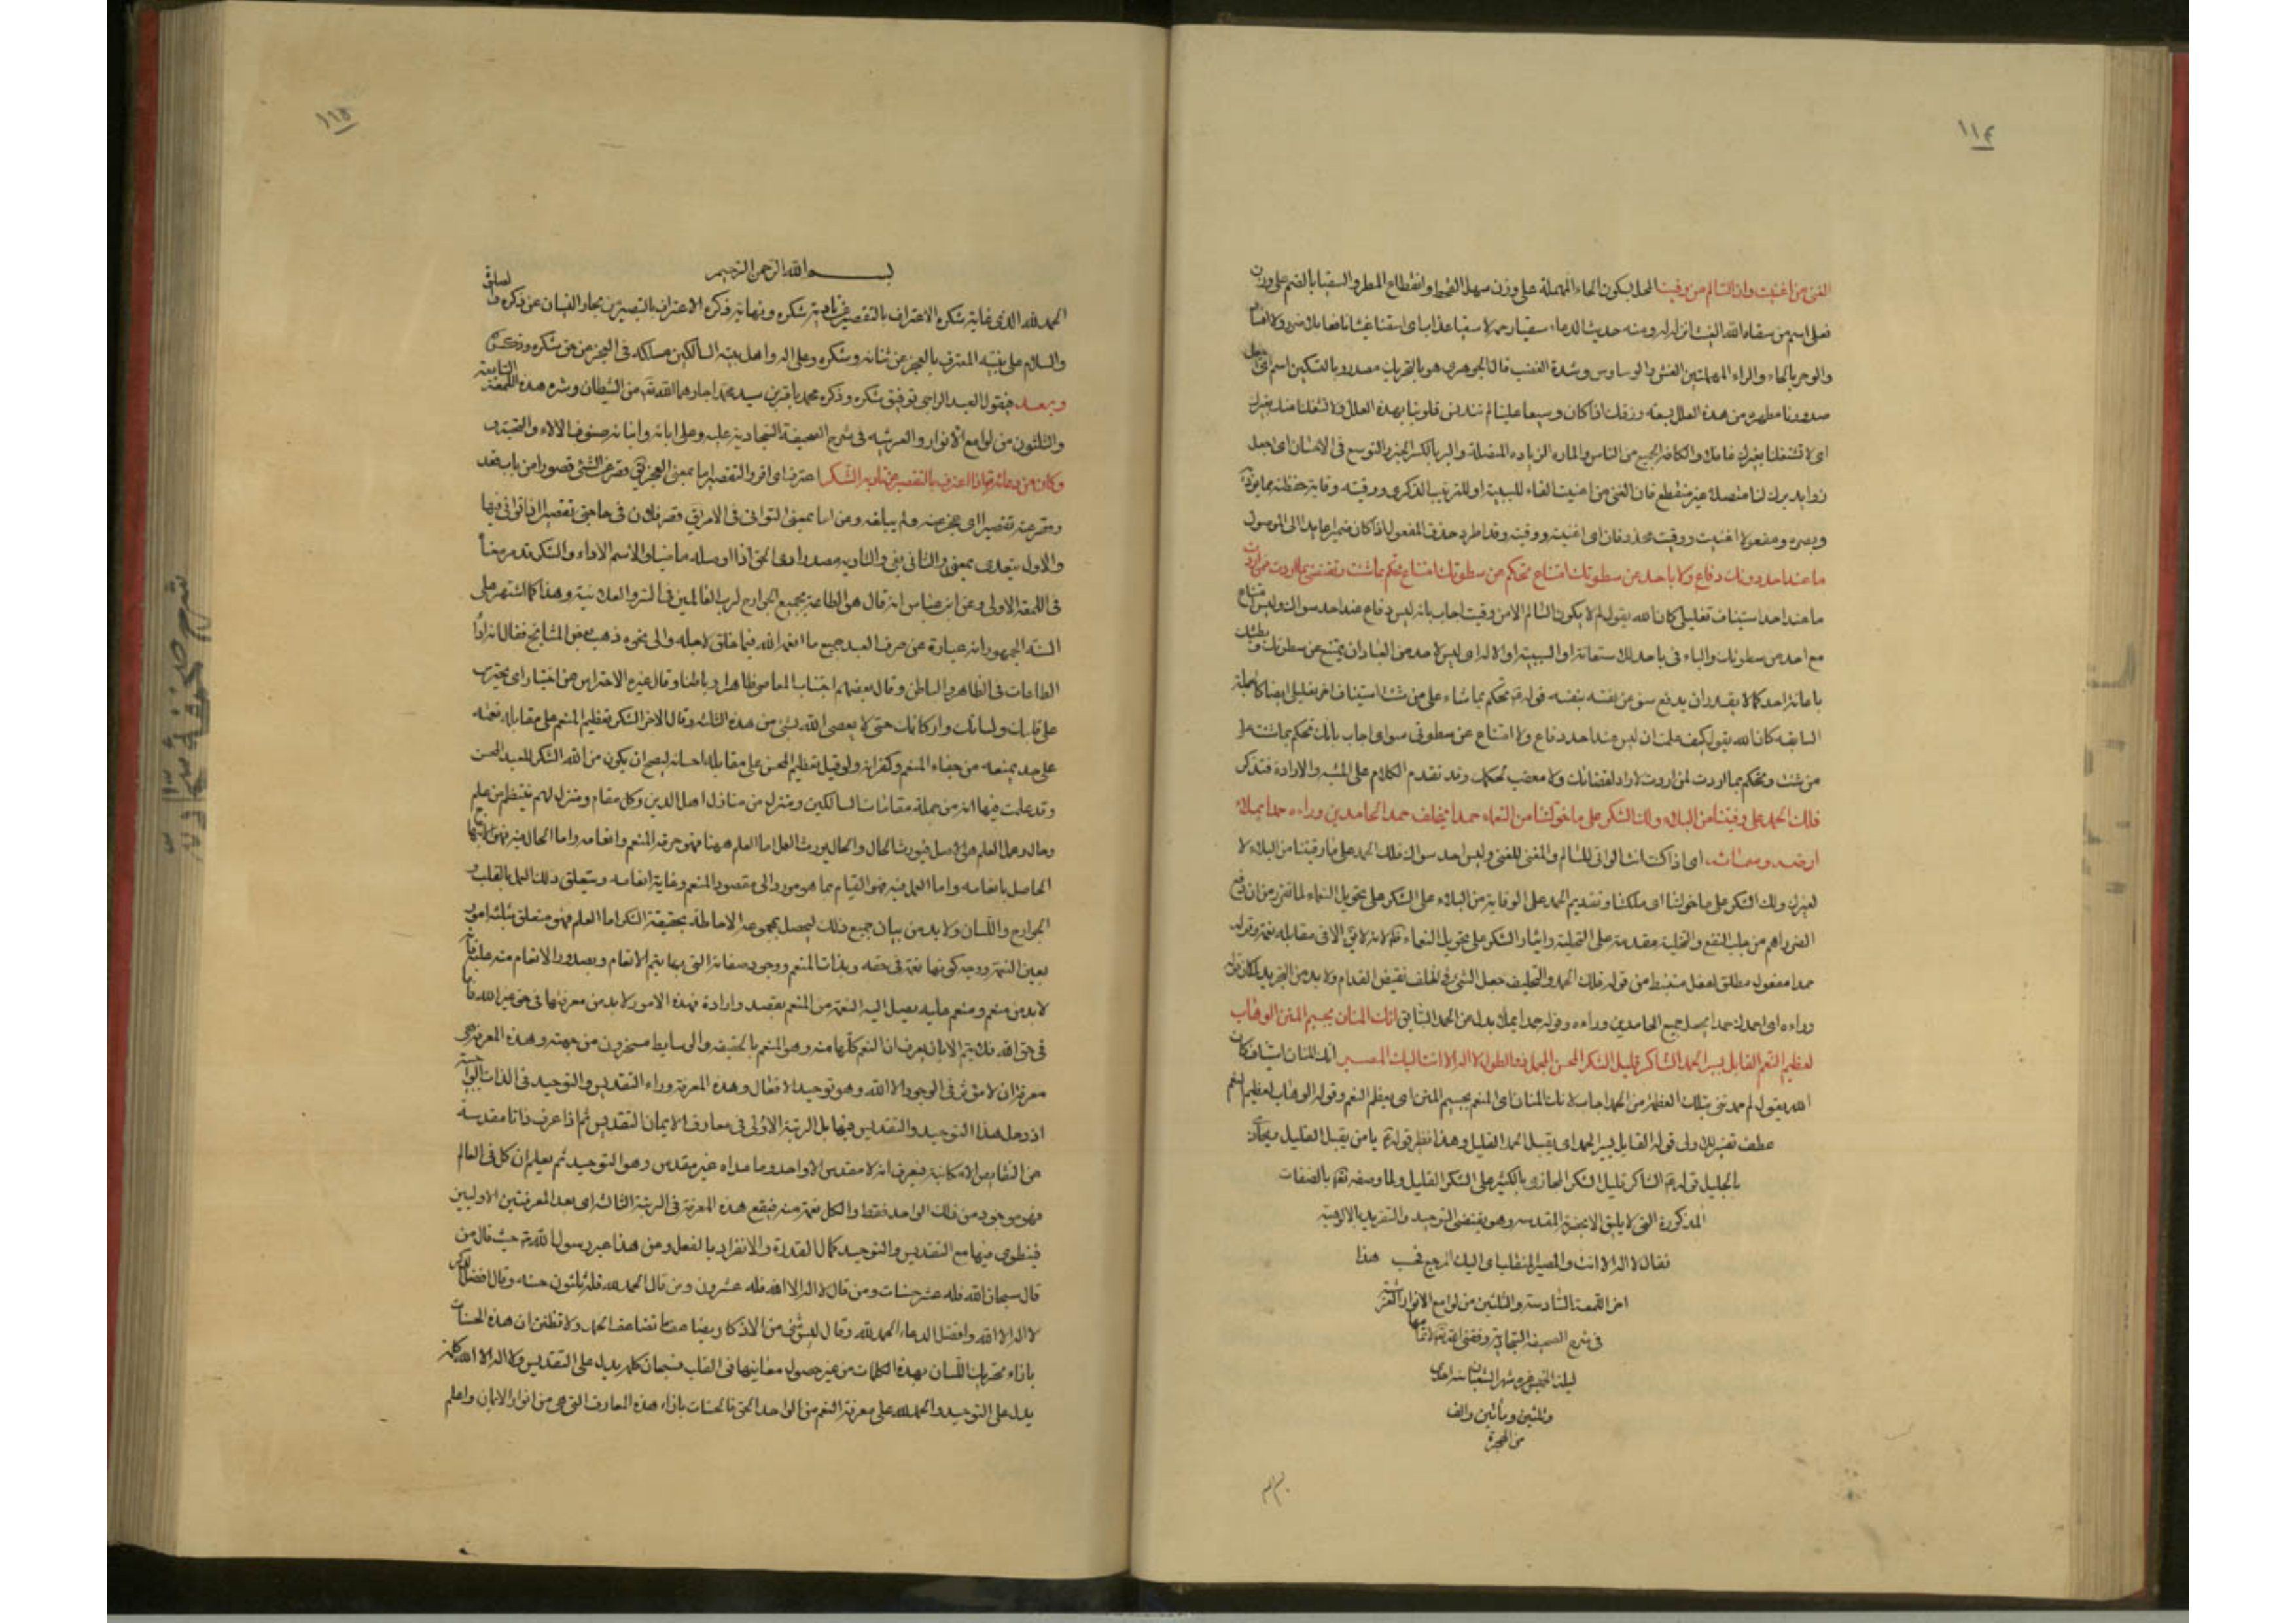 ١١٤
الغنى من اغنيت وان السالم من وقيت المحل بسكون الحاء المهملة على وزن سهل القحط وانقطاع المطر والسقيا بالضم على وزن
فعلى اسم من سقاه الله الغيث انزله له ومنه حديث الدعاء سقيا رحمة لا سقيا عذاب اى اسقنا غيثا نافعا بلا ضرر ولا
والوحر بالحاء والراء المهملتين الغش والوساوس وشدة الغضب قال الجوهرى هو بالتحريك مصدر وبالتسكين اسم اى اجعل
صدورنا مطهرة من هذه العلل بسعة ورزقك اذا كان وسيعا علينا لم تتدنس قلوبنا بهذه العلل ولا تشغلنا عنك بغيرك
اى لا تشغلنا بغيرك عنك والكافة الجميع من الناس والمادة الزيادة المتصلة والبر بالكسر الخير والتوسع فى الاحسان اى اجعل
زوايد برك لنا متصلة غير منقطع فان الغنى من اغنيت الفاء للسببية او للترتيب الذكرى ووقيته وقاية حفظته مما يؤذيه
ويضره ومفعولا اغنيت ووقيت محذوفان اى اغنيته ووقيته وقد اطرد حذف المفعول اذا كان ضميرا عايدا الى الموصول
ما عند احد دونك دفاع ولا باحد عن سطوتك امتناع تحكم بما شئت وتقضى بما اردت فيمن اردت
ما عند احد استيناف تعليلى كان الله يقول لم لا يكون السالم الا من وقيت اجاب بانه ليس دفاع عند احد سواك وليس امتناع
مع احد من سطوتك والباء فى باحد للاستعانة او السببية او الالة اى ليس لاحد من العباد ان يمتنع عن سطوتك وبطشك
باعانة احد كما لا يقدر ان يدفع سوء عن نفسه بنفسه قوله تحكم بما شاء على من شئت استيناف اخر تعليلى ايضا كالجملة
السابقه كان الله يقول كيف علمت ان ليس عند احد دفاع ولا امتناع عن سطوتى سواى اجاب بانك تحكم بما شئت على
من شئت وتحكم بما اردت لمن اردت لا راد لقضائك ولا معقب لحكمك وقد تقدم الكلام على المشية والارادة فتذكر
فلك الحمد على ما وقيتنا من البلاء ولك الشكر على ما خولتنا من النعماء حمدا يخلف حمد الحامدين وراءه حمدا يملاء
ارضه وسماءه اى اذا كنت انت الواقى للسالم والمغنى للغنى وليس احد سواك فلك الحمد على ما وقيتنا من البلاء لا
لغيرك ولك الشكر على ما خولتنا اى ملكتنا وتقديم الحمد على الوقاية من البلاء على الشكر على تخويل النعماء لما تقرر من ان دفع
الضرر اهم من جلب النفع والتخلية مقدمة على التحلية وايثار الشكر على تخويل النعماء لانه لا يقال الا فى مقابلة نعمة وقوله
حمدا مفعول مطلق لفعل مستنبط من قوله فلك الحمد والتخليف جعل الشئ فى الخلف نقيض القدام ولا بد من التجريد لمكان قوله
وراءه اى احمدك حمدا يجعل جميع الحامدين وراءه وقوله حمدا يملاء بدل من الحمد السابق انك المنان بجسيم المنن الوهاب
لعظيم النعم القابل يسير الحمد الشاكر قليل الشكر المحسن المجمل ذو الطول لا اله الا انت اليك المصير انك المنان استيناف كان
الله يقول لم حمدتنى بتلك العظمة من الحمد اجاب لانك المنان اى المنعم بجسيم المنن اى بعظم النعم وقوله الوهاب لعظيم النعم
عطف تفسير للاولى قوله القابل يسير الحمد اى يقبل الحمد القليل وهذا نظير قوله يا من يقبل القليل ويجازى
بالجليل قوله الشاكر قليل الشكر المجازى بالكثير على الشكر القليل ولما وصفه بالصفات
المذكورة التى لا يليق الا بحضرة المقدسه وهو يقتضى التوحيد والتفريد بالالوهية
فقال لا اله الا انت والمصير المنقلب اى اليك المرجع فحسب هذا
اخر اللمعة السادسة والثلثين من لوامع الانوار العرشية
فى شرح الصحيفة السجادية وفقنى الله لاتمامها
ليلة الخميس غره شهر الشعبان سنه احدى
وثلثين ومأتين والف
من الهجرة
١١٥
بسم الله الرحمن الرحيم
الحمد لله الذى غاية شكره الاعتراف بالتقصير عن تأدية شكره ونهاية ذكره الاعتراف بالتبصير من بحار النسيان عن ذكره والصلوة
والسلام على نبيه المعترف بالعجز عن ثنائه وشكره وعلى اله واهل بيته السالكين مسالكه فى العجز عن حق شكره وذكره
وبعد فيقول العبد الراجى توفيق شكره وذكره محمد باقر بن سيد محمد اجارهما الله من الشيطان وشره هذه اللمعة السابعة
والثلثون من لوامع الانوار العرشيه فى شرح الصحيفة السجادية عليه وعلى ابائه وابنائه صنوف الالاء والتحيه
وكان من دعائه اذا اعترف بالتقصير عن تادية الشكر اعترف اى اقر والتقصير اما بمعنى العجز يق قصر عن الشئ قصورا من باب قعد
وقصر عنه تقصيرا اى عجز عنه ولم يبلغه ومن اما بمعنى التوانى فى الامر يق قصر فلان فى حاجتى تقصيرا اذا توانى فيها
والاول يتعدى بمعنى والثانى بفى والتاديه مصدر ادى الحق اذا اوصله ما ضيا والاسم الاداء والشكر قد مر معناه
فى اللمعة الاولى وعن ابن عباس انه قال هو الطاعة بجميع الجوارح لرب العالمين فى السر والعلانية وهذا كما اشتهر على
السنة الجمهور انه عبارة عن صرف العبد جميع ما انعمه الله فيما خلق لاجله والى نحوه ذهب بعض المشايخ فقال انه اداء
الطاعات فى الظاهر والباطن وقال بعضهم اجتناب المعاصى ظاهرا وباطنا وقال غيره الاحتراس عن اختيار اى تحترس
على قلبك ولسانك واركانك حتى لا يعصى الله بشئ من هذه الثلث وقال الاخر الشكر تعظيم المنعم على مقابلة نعمته
على حد يمنعه من جفاء المنعم وكفرانه ولو قيل تعظيم المحسن على مقابلة احسانه ليصح ان يكون من الله الشكر للعبد المحسن
وقد علمت فيها انه من جملة مقامات السالكين ومنزل من منازل اهل الدين وكل مقام ومنزل لهم ينتظم من علم
وحال وعمل العلم هو الاصل فيورث الحال والحال يورث العمل اما العلم ههنا فهو معرفة المنعم وانعامه واما الحال فيه فهو الابتهاج
الحاصل بانعامه واما العمل فيه فهو القيام بما هو مودا الى مقصود المنعم وغاية انعامه ويتعلق ذلك العمل بالقلب و
الجوارح واللسان ولا بد من بيان جميع ذلك ليحصل بمجموعه الاحاطة بحقيقة الشكر اما العلم فهو متعلق بثلثة امور
بعين النعمة ووجه كونها نعمة فى حقه وبذات المنعم ووجود صفاته التى بها يتم الانعام وبصدور الانعام منه عليه فانه
لا بد من منعم ومنعم عليه يصل اليه النعمة من المنعم بقصد وارادة فهذه الامور لا بد من معرفتها فى حق غير الله فاما
فى حق الله فلا يتم الا بان يعرف ان النعم كلها منه وهو المنعم بالحقيقه والوسايط مسخرون من جهته وهذه المعرفة هى
معرفة ان لا مؤثر فى الوجود الا الله وهو توحيد الافعال وهذه المعرفة وراء التقديس والتوحيد فى الذات
اذ دخل هذا التوحيد والتقديس فيها بل الرتبة الاولى فى معارف الايمان التقديس ثم اذا عرف ذاتا مقدسة
عن النقايص الامكانية فيعرف انه لا مقدس الا واحد وما عداه غير مقدس وهو التوحيد ثم يعلم ان كل فى العالم
فهو موجود من ذلك الواحد فقط والكل نعمة منه فيقع هذه المعرفة فى الرتبة الثالثة اى بعد المعرفتين الاوليين
فينطوى فيها مع التقديس والتوحيد كمال القدرة والانفراد بالفعل وعن هذا عبر رسول الله حيث قال من
قال سبحان الله فله عشر حسنات ومن قال لا اله الا الله فله عشرون ومن قال الحمد لله فله ثلثون حسنه وقال افضل الذكر
لا اله الا الله وافضل الدعاء الحمد لله وقال ليس شئ من الاذكار يضاعف ما تضاعف الحمد ولا تظنن ان هذه الحسنات
بازاء تحريك اللسان بهذه الكلمات من غير حصول معانيها فى القلب فسبحان كلمه يدل على التقديس ولا اله الا الله كلمة
يدل على التوحيد والحمد لله على معرفة النعم من الواحد الحق فالحسنات بازاء هذه المعارف التى هى من انوار الايمان واعلم